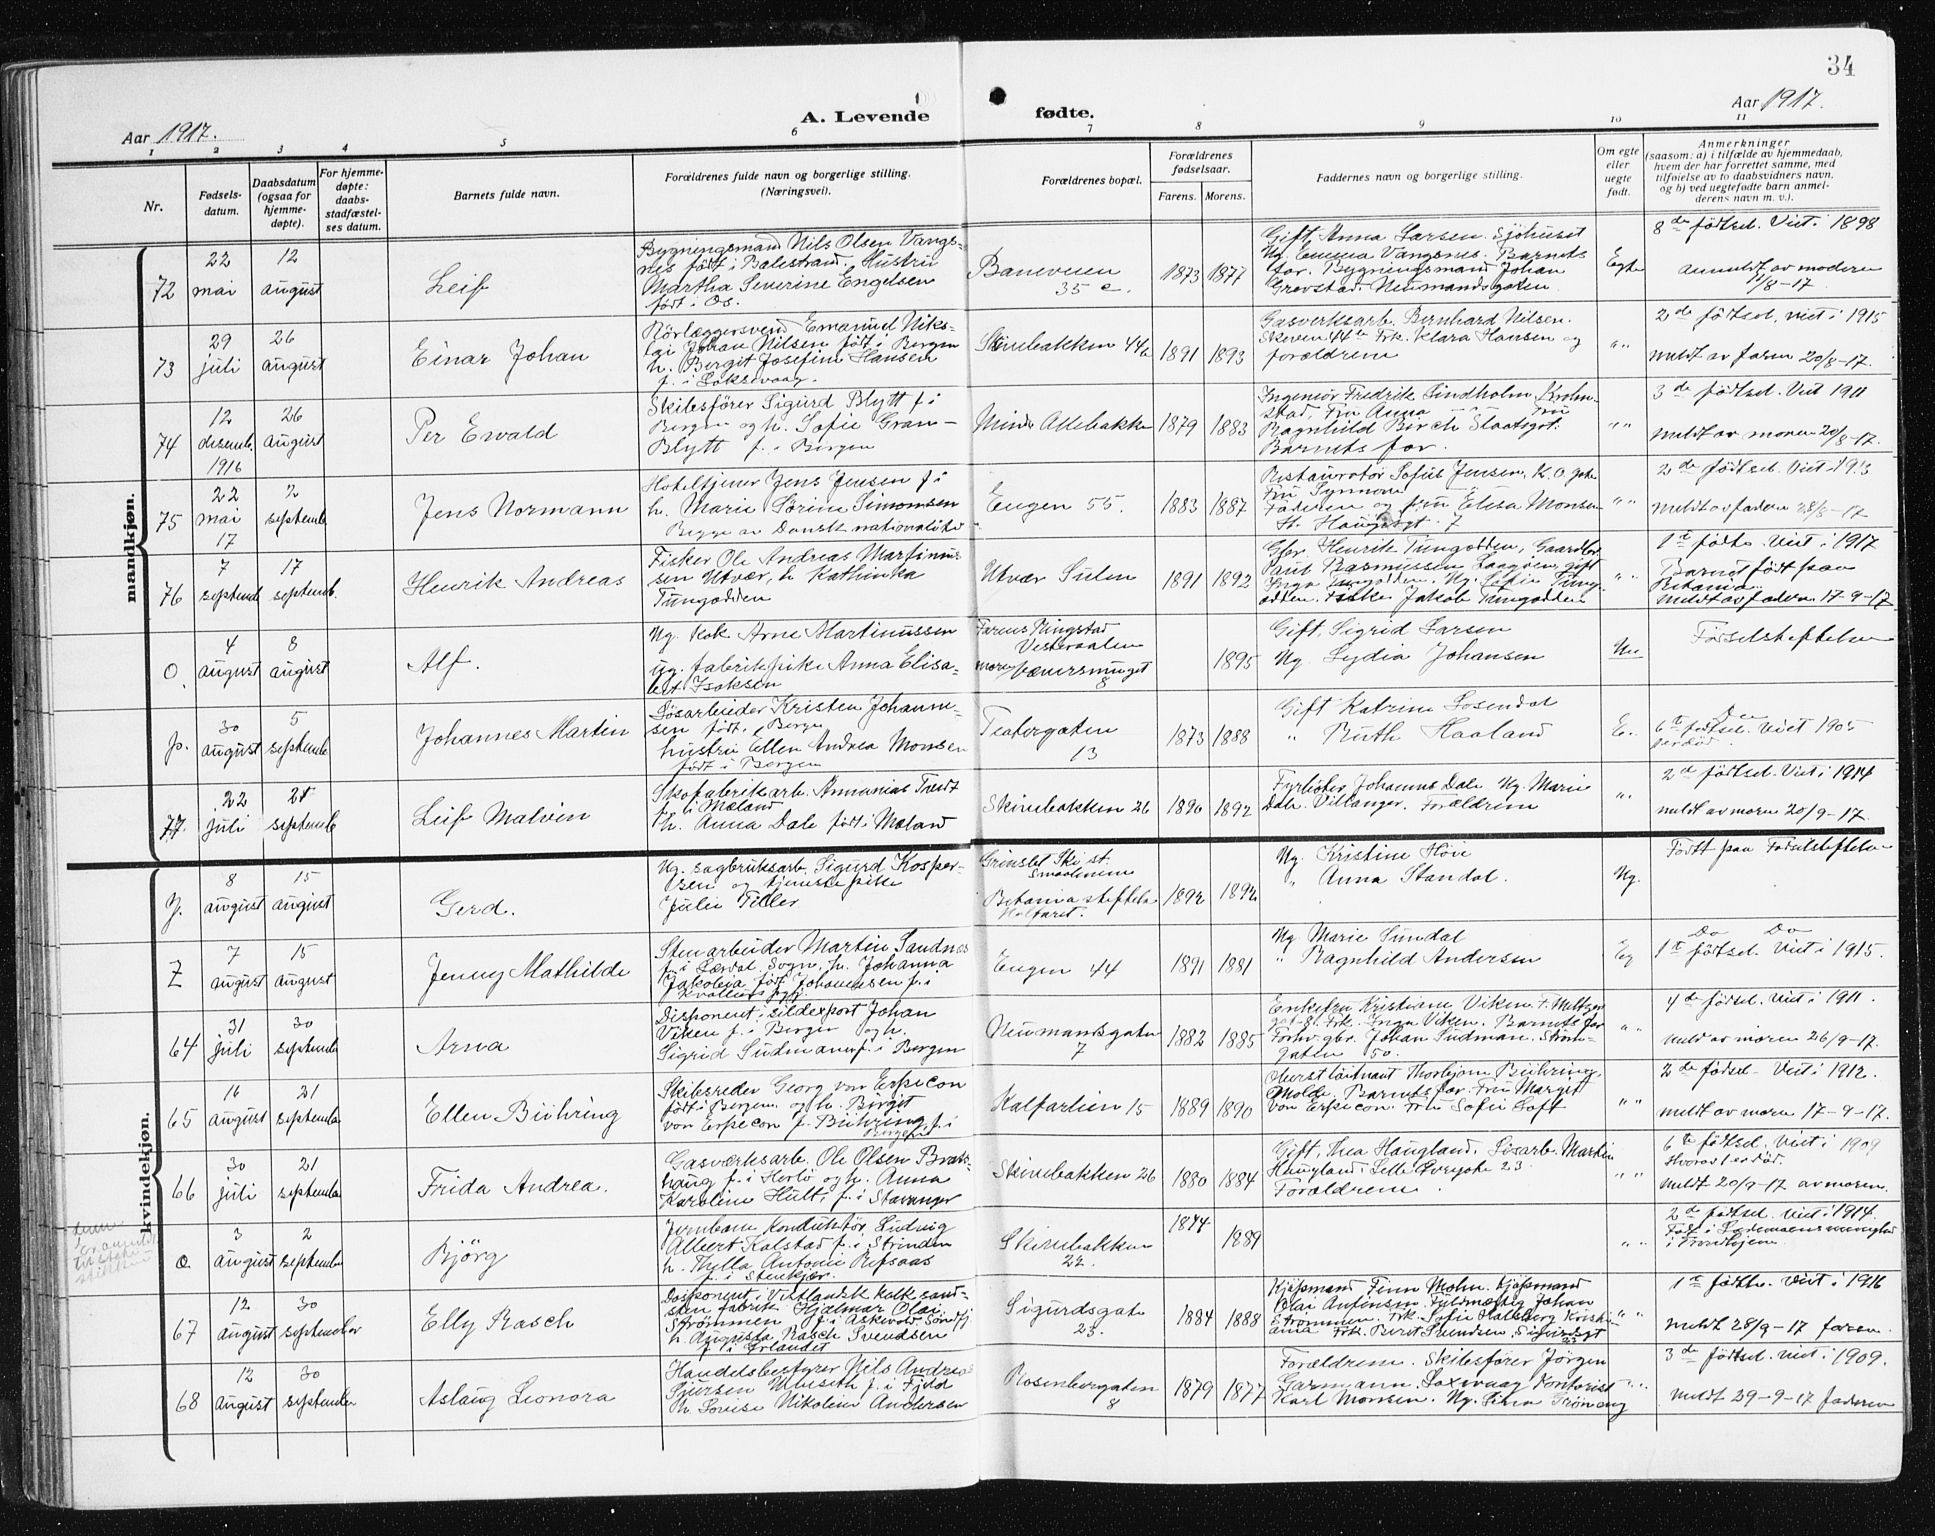 34
Aar 1917.
A. Levende
fødte.
Aar 1917.
1 2 3 4 5 6 7 8 9 10 11
Nr.
Fødsels-
datum.
Daabsdatum
(ogsaa for
hjemme-
døpte).
For hjemme-
døpte:
daabs-
stadfæstel-
ses datum.
Barnets fulde navn.
Forældrenes fulde navn og borgerlige stilling.
(Næringsvei).
Forældrenes bopæl.
Forældrenes
fødselsaar.
Farens. Morens.
Faddernes navn og borgerlige stilling.
Om egte
eller
uegte
født.
Anmerkninger
(saasom: a) i tilfælde av hjemmedaab,
hvem der har forrettet samme, med
tilføielse av to daabsvidners navn,
og b) ved uegtefødte barn anmel-
derens navn m. v.).
mandkjøn.
72
22
mai
12
august
Leif
Bygningsmand Nils Olsen Vangs-
nes født i Balestrand. Hustru
Martha Severine Engelsen
født i Os.
Baneveien
35 c.
1873 1877
Gift Anna Larsen. Sjøhuset
Ug. Emma Vangsnes. Barnets
far. Bygningsmand Johan
Grevstad Neumandsgaten
Egte
8de fødsel. Viet i 1898
anmeldt av moderen
11/8-17.
73
29
juli
26
august
Einar Johan
Rørlæggersvend Emanuel Niko-
lai Johan Nilsen født i Bergen
h. Bergit Josefine Hansen
f. i Laksevaag.
Skivebakken 44a
1891 1893
Gasverksarb. Bernhard Nilsen.
Skiven 44a Frk. Klara Hansen og
forældrene
" "
2de fødsel. viet i 1915
meldt av faren 20/8-17.
74
12
desemb.
1916
26
august
Per Ewald
Skibsfører Sigurd Blytt f. i
Bergen og h. Sofie Gran-
Blytt f. i Bergen
Minde Allebakke
1879 1883
Ingeniør Fredrik Lindholm, Krohn-
stad, Fru Anna Fru
Ragnhild Birch Staatsgt.
Barnets far.
" "
3de fødsel. Viet 1911
meldt av moren 20/8-17.
75
22
mai
17
2
septemb
Jens Normann
Hoteltjener Jens Jensen f. i
h. Marie Sørine Simonsen
Begge av Dansk nationalitet
Engen 55.
1883 1887
Restauratør Sofus Jensen. K.O. gate
Fru Synnøve
Faderen og fru Elisa Monsen
St. Haugsgt. 7
" "
2de fødsel. Viet 1913
meldt av faderen 28/8-17
76
7
septemb
17
septemb.
Henrik Andreas
Fisker Ole Andreas Martinus-
sen Utvær, h. Kathinka
Tungodden
Utvær Sulen
1891 1892
Gbr. Henrik Tungodden, Gaardbr.
Paul Rasmussen gift
Inga Tungodden. Ug. Sofie Tung-
odden. Fisker Jakob Tungodden
" "
1ste fødte Viet i 1917
Barnet født paa
Betania.
meldt av faderen 17-9-17
O.
4
august
8
august
Alf.
Ug. Kok Arne Martinussen
ug. fabrikpike Anna Elisa-
bet Isaksen
Farens Ringstad
Vesteraalen
moren Vænersmuget
8
1895
Gift, Sigrid Larsen
Ug. Lydia Johansen
Ue.
Fødselsstiftelse
p.
30
august
5
septemb
Johannes Martin
Løsarbeider Kristen Johanne-
sen født i Bergen
hustru Ellen Andrea Monsen
født i Bergen
Teatergaten
13
1873 1888
Gift Katrine Losendal
" Ruth Haaland
E.
Do
6te fødsel. Viet 1905
77.
22
juli
21
septemb
Leif Malvin
Skofabrikarb. Annanias
f. i Mæland
h. Anna Dale født i Mæland
Skivebakken 26
1890 1892
Fyrbøter Johannes Dale Ug. Marie
Dale. Villanger. Forældrene
" "
2de fødsel. Viet i 1914
meldt av moren 20/9-17.
kvindekjøn.
Y.
8
august
15
august
Gerd.
Ug. sagbruksarb. Sigurd Kasper-
sen og tjenestepike
Julie Tiller
Grinslet Ski st.
Smaalenene
Betania stiftelse
1892 1892
Ug. Kristine Høie
" Anna Standal.
Ug.
Født paa Fødselsstiftelse
Z
7
august
15
august
Jenny Mathilde
Stenarbeider Martin Sandnes
f. i Lærdal, Sogn, h. Johanna
Jakobea født Johannesen f. i
Engen 44
1891 1881
Ug. Marie Sundal
" Ragnhild Andersen
Eg
Do Do
1ste fødsel. Viet i 1915.
64
31
juli
30
septemb
Arna
Disponent i sildexport Johan
Viken f. i Bergen og h.
Sigrid Sudmann f. i Bergen
Neumandsgaten
7
1882 1885
Enkefru Kristiane Viken, F. Meltzer
gt. 8. Frk. Inga Viken. Barnets far
Forhv. gbr. Johan Sudman. Strøm-
gaten 50.
" "
4de fødsel. Viet i 1911.
meldt av moren 26/9-17.
65
16
august
21
septemb
Ellen Bühring
Skibsreder Georg von Erpecon
født i Bergen og h. Birgit
von Erpecon f. Bühring, f. i
Bergen
Kalfarlien 15
1889 1890
Oberstløitnant Thorbjørn Bühring,
Molde. Barnets far. Fru Margit
von Erpecon. Frk. Sofie Loft
" "
2de fødsel - Viet i 1912.
meldt av moren 17-9-17.
66
30
juli
21
septemb
Frida Andrea.
Gasværksarb. Ole Olsen Brat-
haug f. i Herlø og h. Anna
Karoline Hult, f. i Stavanger
Skivebakken 26
1880 1884
Gift, Thea Haugland, Løsarb. Martin
Haugland, Lille Øvregate 23.
Forældrene
" "
6te fødsel. Viet i 1909
Hvorav 1 er død.
Meldt 20/9-17 av moren.
O.
3
august
2
septemb
Bjørg
Jernbane Konduktør Ludvig
Albert Kalstad f. i Strinden
h. Hylla Antonie Refsaas
f. i Stenkjær.
Skivebakken
22.
1884
1889
" "
2de fødsel. Viet i 1914.
i Trondhjem.
67
12
august
30
september
Elly Rasch
Disponent i Vestlandsk kalksand-
sten fabrik Hjalmar Olai
Strømmen f. i Askevold. Søndfj.
h. Augusta Rasch Svendsen
f. i Ørlandet
Sigurdsgate
23.
1884 1888
Kjøpmand Finn Mohn. Kjøpmand
Olai Antonsen. Fuldmægtig Johan
Strømmen. Frk. Sofie Halsberg Kristi-
ania Frk. Berit Svendsen, Sigurdsgt
23
" "
1ste fødte. Viet i 1916
meldt 28/9-17 faren.
68
12
august
30
septembe
Aslaug Leonora
Handelsbestyrer Nils Andreas
Sjursen Ulleseth f. i Fjeld
h. Lovise Nikoline Andersen
Rosenbergaten
8
1879 1877
Forældrene. Skibsfører Jørgen
Garmann, Laxevaag Kontorist
Karl Monsen. Ug. Stina Trønæng
" "
3de fødsel. viet i 1909.
meldt 29-9-17 faderen